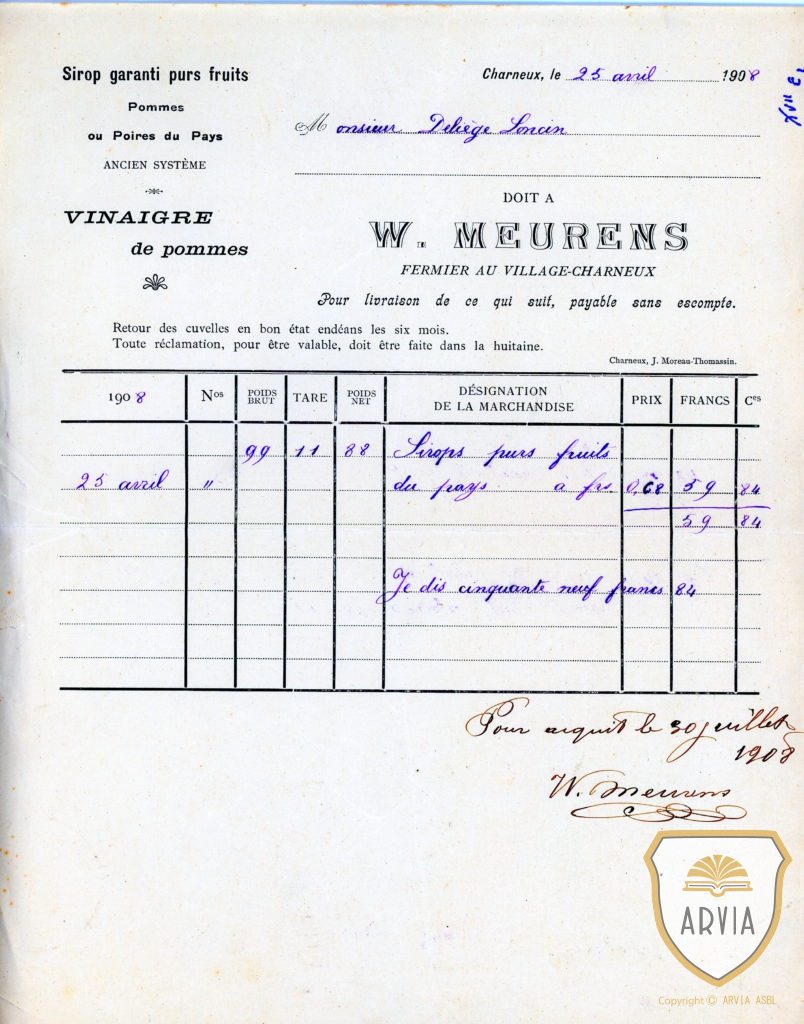 Sirop garanti purs fruits
Pommes
ou Poires du Pays
ANCIEN SYSTÈME
VINAIGRE
de pommes
Charneux, le 25 avril 1908
Monsieur Deliège Loncin
DOIT A
W. MEURENS
FERMIER AU VILLAGE-CHARNEUX
Pour livraison de ce qui suit, payable sans escompte.
Retour des cuvelles en bon état endéans les six mois.
Toute réclamation, pour être valable, doit être faite dans la huitaine.
Charneux, J. Moreau-Thomassin.
1908 Nos POIDS BRUT TARE POIDS NET DÉSIGNATION DE LA MARCHANDISE PRIX FRANCS Ces
99 11 88 Sirops purs fruits
25 avril " du pays à frs. 0,68 59 84
59 84
Je dis cinquante neuf francs 84
Pour acquit le 30 juillet
1908
W. Meurens
ARVIA
Copyright © ARVIA ASBL